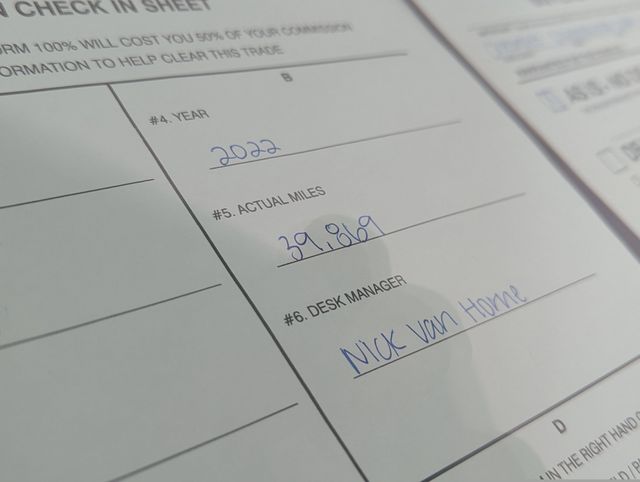 CHECK IN SHEET
100% WILL COST YOU 50% OF YOUR COMMISSION
TO HELP CLEAR THIS TRADE
B
#4. YEAR
2022
#5. ACTUAL MILES
39,869
#6. DESK MANAGER
Nick Van Horne
D
IN THE RIGHT HAND